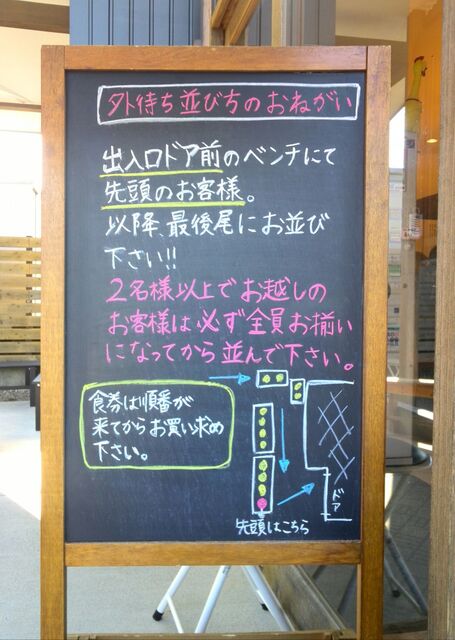 外待ち並び方のおねがい
出入口ドア前のベンチにて
先頭のお客様。
以降、最後尾にお並び
下さい!!
2名様以上でお越しの
お客様は必ず全員お揃い
になってから並んで下さい。
食券は順番が
来てからお買い求め
下さい。
ドア
先頭はこちら